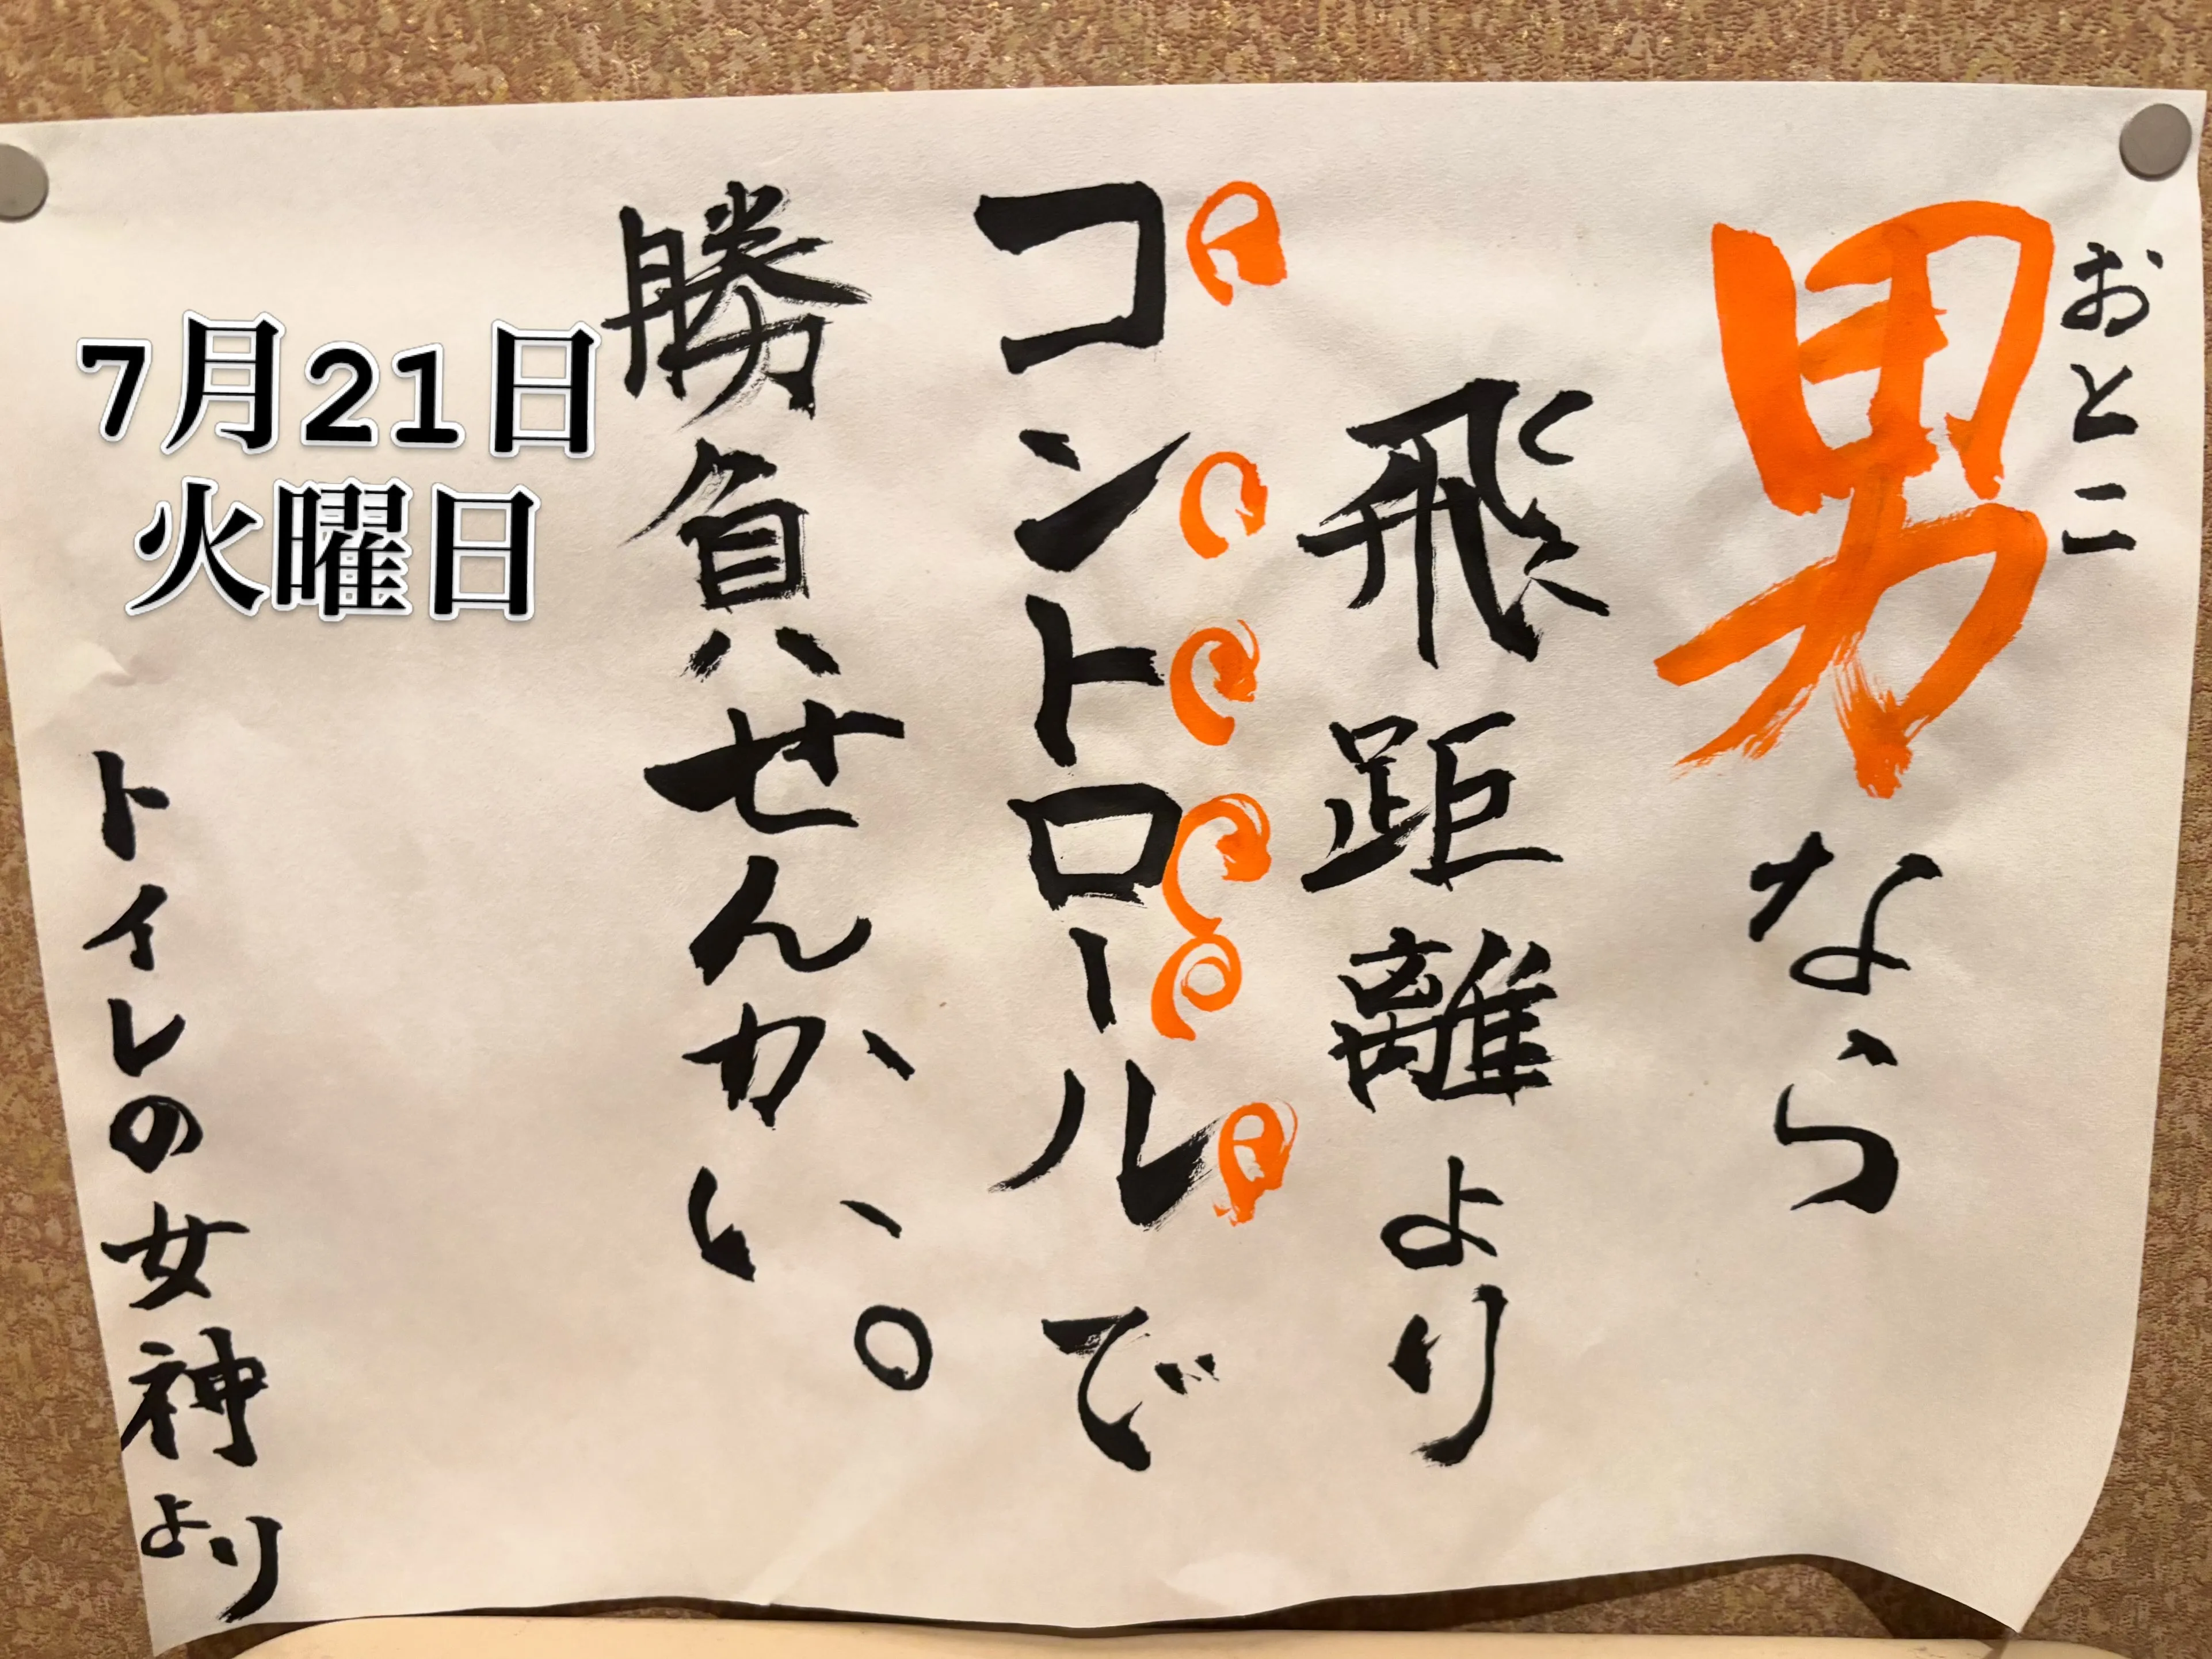 おとこ
男なら
飛距離より
コントロールで
勝負せんかい。
7月21日
火曜日
トイレの女神より